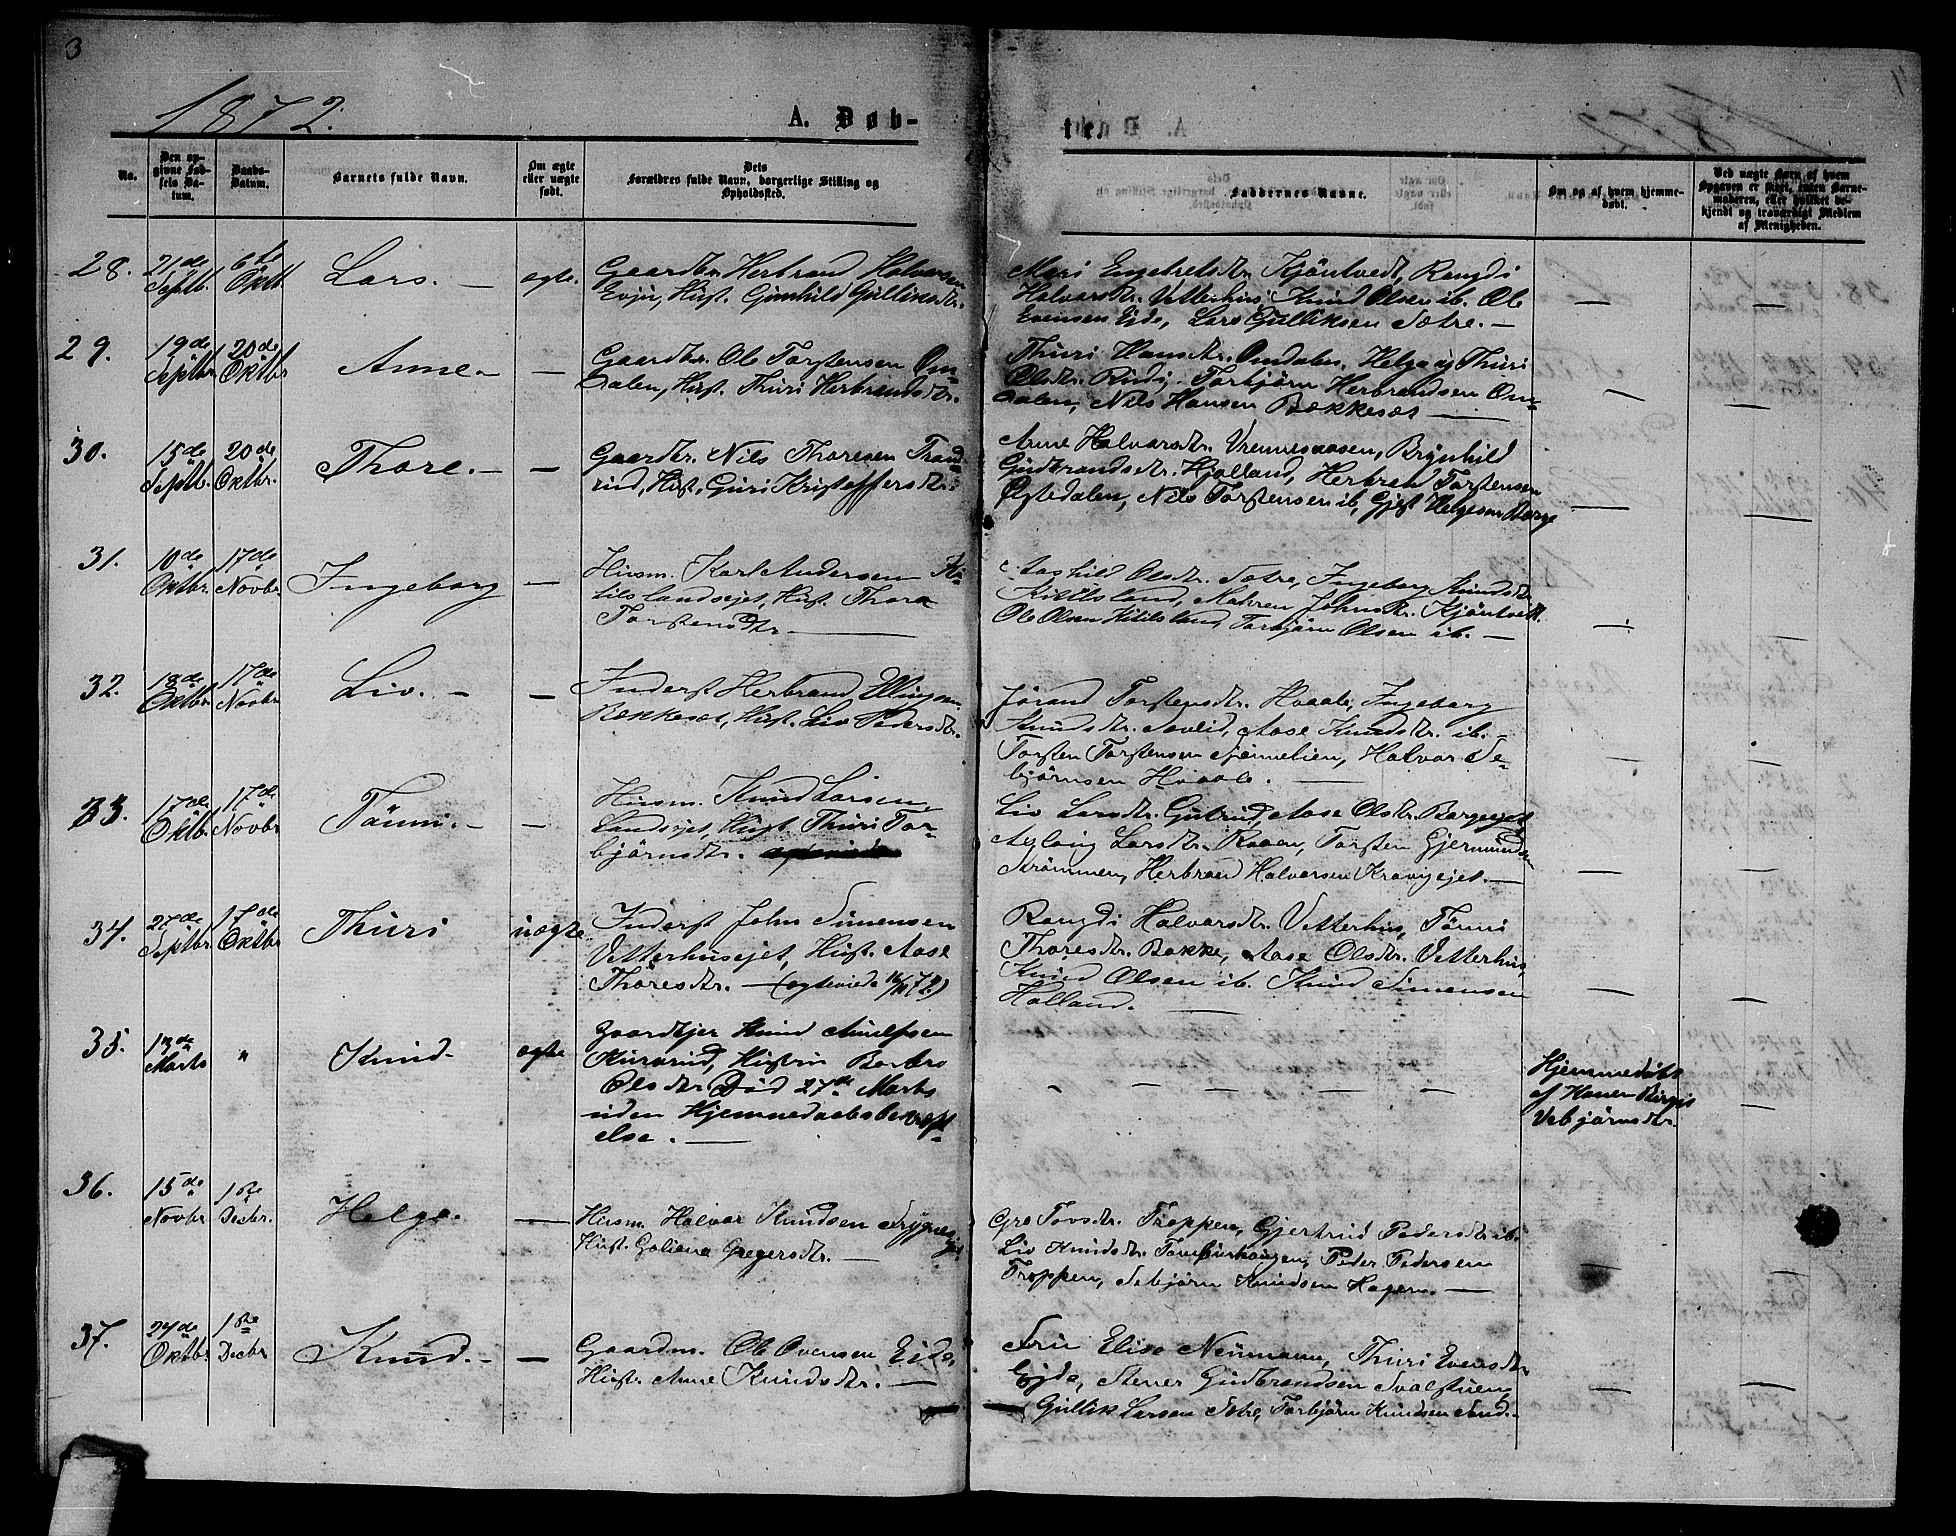 3
1872.
A. Døb-
te.
No.
Den op-
givne Fød-
sels Da-
tum.
Daabs-
Datum.
Barnets fulde Navn.
Om ægte
eller uægte
født.
Dets
Forældres fulde Navn, borgerlige Stilling og
Opholdssted.
Faddernes Navne.
Om og af hvem hjemme-
døbt.
Ved uægte Børn af hvem
Opgaven er skeet, enten Barne-
moderen, eller hvilket be-
kjendt og troværdigt Medlem
af Menigheden.
28. 21de Septb. 6te Oktb. Lars. — ægte.
Gaardbr. Herbrand Halvorsen
Evju, Hust. Gunhild Gulliksdtr.
Mari Engebretsdtr. Kjöntvedt, Rangdi
Halvorsdtr. Vetterhus, Knud Olsen ib. Ole
Evensen Eide, Lars Gulliksen Sætre. —
29. 19de Septbr. 20de Oktbr. Anne. — —
Gaardbr. Ole Torstensen Om-
dalen, Hust. Thuri Herbrandsdtr.
Thuri Hansdtr. Omdalen, Helga og Thuri
Olsdtr. Rudi, Torbjörn Herbrandsen Om-
dalen, Nils Hansen Bækkesæt —
30. 15de Septb. 20de Oktbr. Thore. — —
Gaardbr. Nils Thoresen Trond-
rud, Hust. Guri Kristoffersdtr.
Anne Halvorsdtr. Vrennesaasen, Brynhild
Gudbrandsdtr. Hjolland, Herbrand Torstensen
Øgtedalen, Nils Torstensen ib, Gjest Helgesen Berge
31. 10de Oktbr. 17de Novbr. Ingeborg —
Husm. Karl Andersen Ki-
tilslandsejet, Hust. Thora
Torstensdtr. —
Aashild Olsdtr. Sætre, Ingeborg Amundsdtr.
Kittilsland, Maren Johnsdtr. Kjöntvedt.
Ole Olsen Kitilsland, Torbjörn Olsen ib. —
32. 18de Oktbr. 17de Novbr. Liv. — —
Inderst Herbrand Ellingsen
Bækkesæt, Hust. Liv Pedersdtr.
Jörand Torstensdtr. Hvaale, Ingeborg
Knudsdtr. Sovlid, Aase Knudsdtr. ib. —
Torsten Torstensen Simelien, Halvor Se-
björnsen Hvaale. —
33. 17de Oktb. 17de Novbr. Tönni. — —
Husm. Knud Larsen
Landsejet, Hust. Thuri Tor-
björnsdtr.
Liv Larsdtr. Gulrud, Aase Olsdtr. Borgeejet,
Aslaug Larsdtr. Raaen, Torsten Gjermundsen
Strömmen, Herbrand Halvorsen Kravigejet. —
34. 27de Septbr. 17de Oktbr. Thuri uægte
Inderst John Simensen
Vetterhusejet, Hust. Aase
Thoresdtr. — (ægteviede 16/11 72)
Rangdi Halvorsdtr. Vetterhus, Tönni
Thoresdtr. Bakke, Aase Olsdtr. Vetterhus,
Knud Olsen ib. Knud Simensen
Holland. —
35. 13de Marts " Knud. ægte
Gaardejer Knud
Olsdtr. Død 27de Marts
uden Hjemmedaabsbekræft-
else. —
Hjemmedøbt
af
Vebjörnsdtr.
36. 15de Novbr. 1ste Decbr. Helge. —
Husm. Halvor Knudsen
Hust. Goliena Gregersdtr. —
Gro Tovsdtr. Troppen, Gjertrud Pedersdtr. ib.
Liv Knudsdtr. Peder Pedersen
Troppen, Sebjörn Knudsen Hagen. —
37. 24de Oktbr. 1ste Decbr. Knud. — —
Gaardm. Ole Ovensen Eide,
Hust. Anne Knudsdtr. —
Fru Elise Neumann, Thuri Evensdtr.
Ejde, Stener Gudbrandsen
Gullik Larsen Sætre, Torbjörn Knudsen